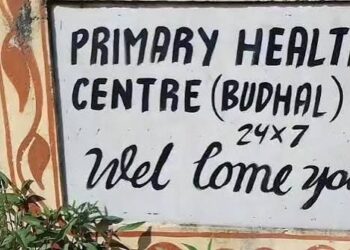 PRIMARY HEALT
CENTRE (BUDHAL)
24x7
Wel Come yo